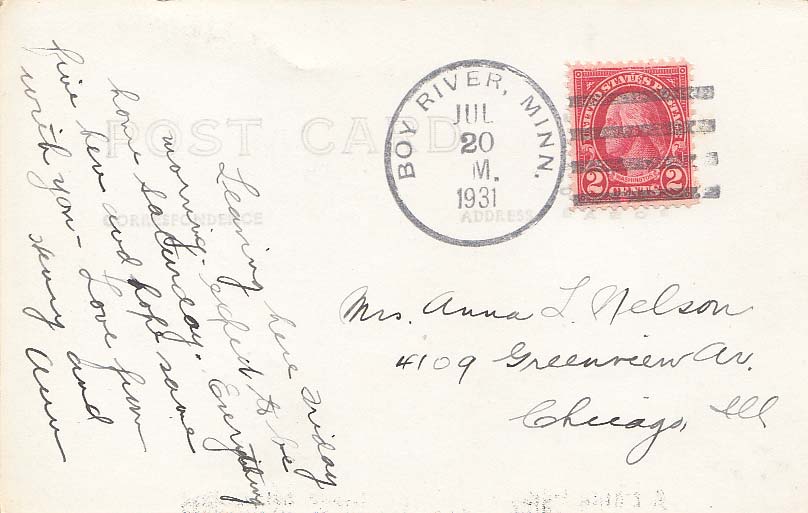 POST CARD
CORRESPONDENCE
ADDRESS
BOY RIVER, MINN.
JUL
20
M.
1931
UNITED STATES POSTAGE
WASHINGTON
2 CENTS 2
Leaving here Friday
morning, expect to be
home Saturday. Everything
fine here and hope same
with you - Love from
Henry and
Ann
Mrs. Anna L. Nelson
4109 Greenview Av.
Chicago, Ill